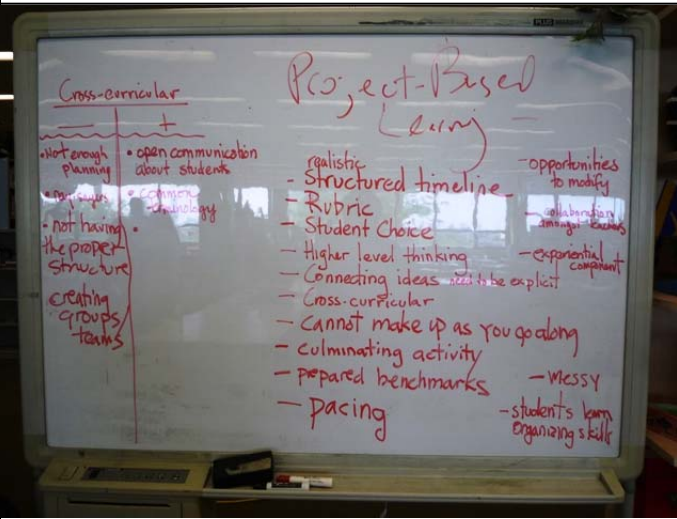 PLUS
Cross-curricular
— +
• Not enough
planning
•
• not having
the proper
structure
creating
groups/
teams
• open communication
about students
• common
•
Project-Based
Learning
realistic
- Structured timeline
- Rubric
- Student Choice
- Higher level thinking
- Connecting ideas need to be explicit
- Cross-curricular
- Cannot make up as you go along
- culminating activity
- prepared benchmarks
- pacing
- opportunities
to modify
- collaboration
amongst teachers
- experiential
component
- messy
- students learn
organizing skills